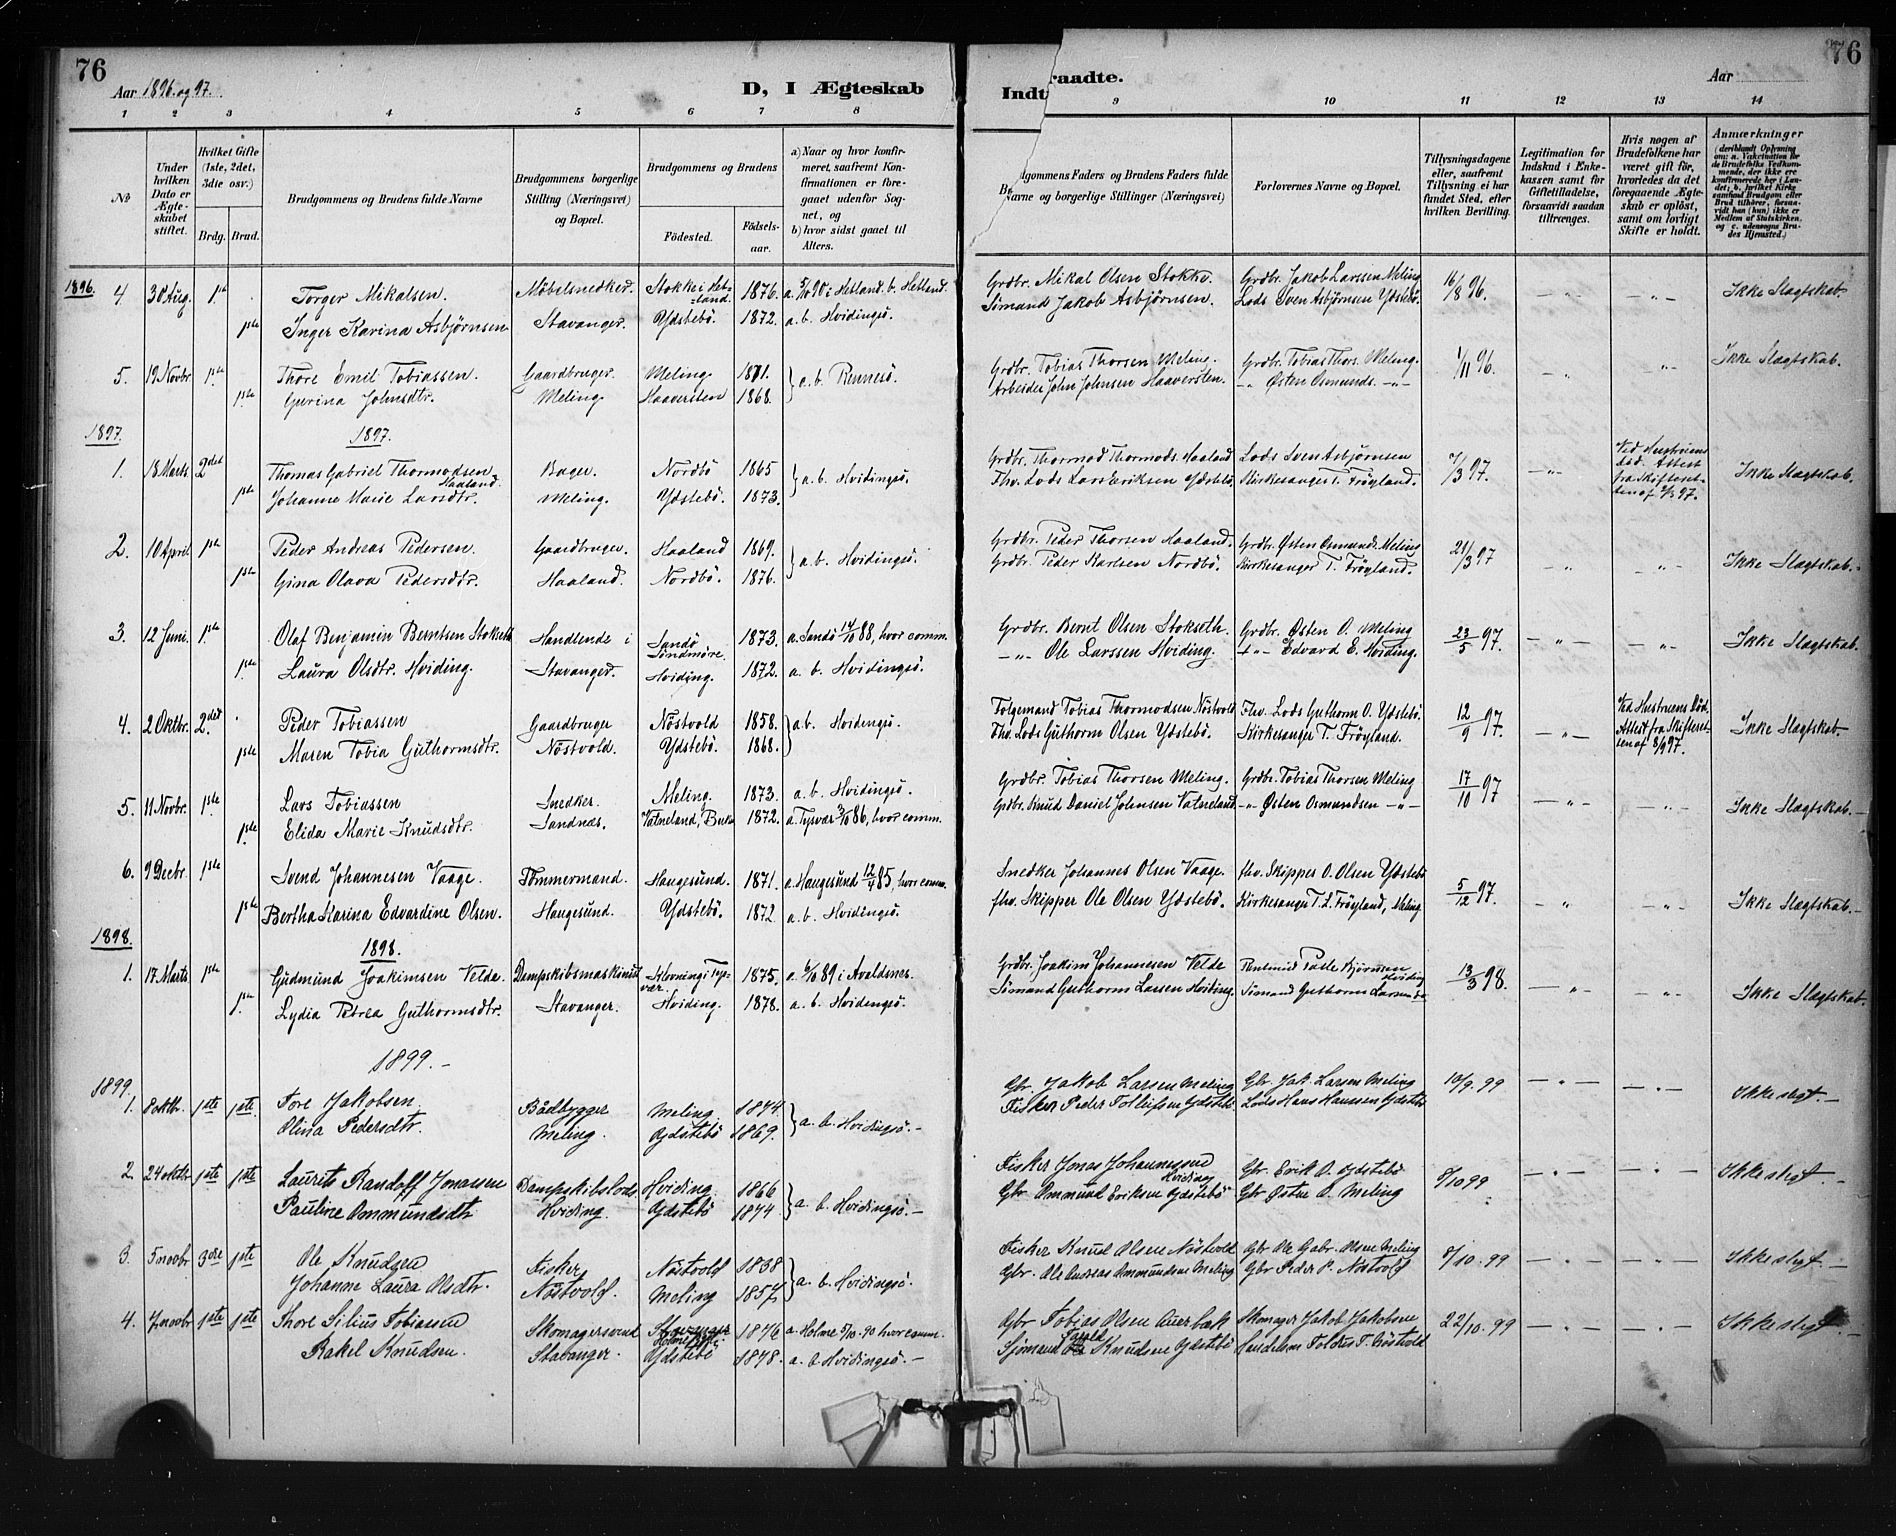 76
Aar 1896 og 97.
D, I Ægteskab
1 2 3 4 5 6 7 8
No
Under hvilken Dato er Ægteskabet stiftet.
Hvilket Gifte (1ste, 2det, 3die osv.)
Brdg. Brud.
Brudgommens og Brudens fulde Navne
Brudgommens borgerlige Stilling (Næringsvei) og Bopæl.
Brudgommens og Brudens
Fødested. Fødselsaar.
a) Naar og hvor konfirmeret, saafremt Konfirmationen er foregaaet udenfor Sognet, og
b) hvor sidst gaaet til Alters.
1896. 4 30 Aug. 1ste Torger Mikalsen. Møbelsnedker. Stokke i Hetland. 1876. a. 5/10 90 i Hetland. b. Hetland.
1ste Inger Karina Asbjørnsen Stavanger. Ydstebø. 1872. a. b. Hvidingsø.
5. 19 Novbr. 1ste Thore Emil Tobiassen. Gaardbruger. Meling 1871. a. b. Rennesø.
1ste Gurina Johnsdtr. Meling. Haaversten 1868.
1897. 1897.
1. 18 Marts 2det Thomas Gabriel Thormodsen Haaland. Bager. Nordbø 1865 a. b. Hvidingsø.
1ste Johanne Marie Larsdtr. Meling. Ydstebø. 1873.
2. 10 April 1ste Peder Andreas Pedersen. Gaardbruger. Haaland 1869. a. b. Hvidingsø.
1ste Gina Olava Pedersdtr. Haaland. Nordbø. 1876.
3. 12 Juni. 1ste Olaf Benjamin Berntsen Stokseth Handlende i Sandø Søndmøre. 1873. a. Sandø 14/10 88, hvor comm.
1ste Laura Olsdtr. Hviding. Stavanger. Hviding. 1872. a. b. Hvidingsø.
4. 2 Oktbr. 2det Peder Tobiassen Gaardbruger Nøstvold 1858. a. b. Hvidingsø.
1ste Maren Tobia Guthormsdtr. Nøstvold. Ydstebø. 1868.
5. 11 Novbr. 1ste Lars Tobiassen Snedker. Meling. 1873. a. b. Hvidingsø.
1ste Elida Marie Knudsdtr. Sandnæs. Vatneland, Bukn 1872. a. Tysvær 3/10 86, hvor comm.
6. 9 Decbr. 1ste Svend Johannesen Vaage. Tømmermand. Haugesund. 1871. a. Haugesund 12/4 85, hvor comm.
1ste Bertha Karina Edvardine Olsen. Haugesund. Ydstebø. 1872 a. b. Hvidingsø.
1898. 1898.
1. 17 Marts 1ste Gudmund Joakimsen Velde. Dampskibsmaskinist Klovning i Tysvær. 1875. a. 6/10 89 i Avaldsnes.
1ste Lydia Petrea Guthormsdtr. Stavanger. Hviding. 1878. a. b. Hvidingsø.
1899.
1899. 1. 8 oktbr. 1ste 1ste. Tore Jakobsen. Baadbygger Meling. 1874. a. b. Hvidingsø.
Olina Pedersdtr. Meling. Ydstebø 1869.
2. 24 oktbr 1ste 1ste Laurits Randoff Jonassen Dampskibslods Hviding. 1866 a. b. Hvidingsø.
Pauline Ommundsdtr Hviding. Ydstebø 1874.
3. 5 novbr 3die 1ste Ole Knudsen Fisker Nøstvold 1838 a. b. Hvidingsø.
Johanne Laura Olsdtr. Nøstvold. Meling 1857.
4. 7 novbr 1ste 1ste Thore Silius Tobiassen Skomagersvend 1876 a. Holme 5/10. 90 hvor comm.
Rakel Knudsen. Stavanger. Ydstebø 1878. a. b Hvidingsø.
76
Indtraadte.
Aar
9 10 11 12 13 14
Brudgommens Faders og Brudens Faders fulde Navne og borgerlige Stillinger (Næringsvei)
Forlovernes Navne og Bopæl.
Tillysningsdagene eller, saafremt Tillysning ei har fundet Sted, efter hvilken Bevilling.
Legitimation for Indskud i Enkekassen samt for Giftetilladelse, forsaavidt saadan tiltrænges.
Hvis nogen af Brudefolkene har været gift før, hvorledes da det foregaaende Ægteskab er opløst, samt om lovligt Skifte er holdt.
Anmærkninger (deriblandt Oplysning om: a. Vakcination for de Brudefolks Vedkommende, der ikke ere konfirmerede her i Landet; b. hvilket Kirkesamfund Brudgom eller Brud tilhører, forsaavidt han (hun) ikke er Medlem af Statskirken, og c. udensogns Brudes Hjemsted.)
Grdbr. Mikal Olsen Stokke. Grdbr. Jakob Larssen Meling 16/8 96. Ikke Slagtskab.
Sømand Jakob Asbjørnsen. Lods Sven Asbjørnsen Ydstebø.
Grdbr. Tobias Thorsen Meling. Grdbr. Tobias Thors. Meling. 1/11 96. Ikke Slagtskab.
Arbeider John Johnsen Haaversten. —„— Østen Osmunds. —„—
Grdbr. Thormod Thormods. Haaland Lods Sven Asbjørnsen 7/3 97. Ved Hustruens død. Attest fra Skifteretten af 2/3 97. Ikke Slagtskab.
Fhv. Lods Lars Eriksen Ydstebø. Kirkesanger T. Frøyland.
Grdbr. Peder Thorsen Haaland. Grdbr. Østen Osmunds. Meling 21/3 97 Ikke Slagtskab.
Grdbr. Peder Karlsen Nordbø. Kirkesanger T. Frøyland.
Grdbr. Bernt Olsen Stokseth. Grdbr. Østen O. Meling 23/5 97. Ikke Slagtskab.
—„— Ole Larssen Hviding. —„— Edvard E. Hviding.
Folgemand Tobias Thormodsen Nøstvold Fhv. Lods Guthorm O. Ydstebø. 12/9 97. Ved Hustruens Død. Attest fra Skifteretten af 8/9 97. Ikke Slagtskab.
Fhv. Lods Guthorm Olsen Ydstebø. Kirkesanger T. Frøyland.
Grdbr. Tobias Thorsen Meling. Grdbr. Tobias Thorsen Meling 17/10 97 Ikke Slagtskab.
Grdbr. Knud Daniel Johnsen Vatneland. —„— Østen Osmundsen —„—
Snedker Johannes Olsen Vaage. fhv. Skipper O. Olsen Ydstebø 5/12 97. Ikke Slagtskab.
fhv. Skipper Ole Olsen Ydstebø. Kirkesanger T. L. Frøyland, Meling
Grdbr. Joakim Johannesen Velde Palle Bjørnsen Hviding 13/3 98. Ikke Slagtskab.
Sømand Guthorm Larsen Hviding. Sømand Guthorm Larsen
Gbr. Jakob Larsen Meling Gbr. Jak. Larsen Meling 10/9. 99 Ikke slegt.
Fisker Peder Tollufsen Ydstebø Lods Hans Hanssen Ydstebø
Fisker Jonas Johannessen Hviding Gbr. Erik O. Ydstebø 8/10 99 Ikke slegt.
Gbr Ommund Eriksen Ydstebø Gbr Østen O. Meling
Fisker Knud Olsen Nøstvold Gbr Ole Gabr. Olsen Meling 8/10. 99 Ikke slegt.
Gbr. Ole Andreas Ommundsen Meling Gbr Peder P. Nøstvold
Gbr Tobias Olsen Auerbæk Skomager Jakob Jakobsen 22/10. 99 Ikke slegt.
Sjømand Knudsen Ydstebø Handelsm. T. Nøstvold